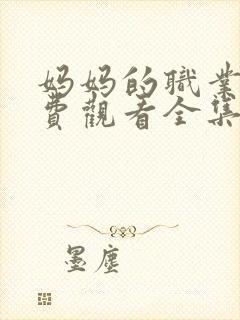 妈妈的職業
費觀看全集
墨塵